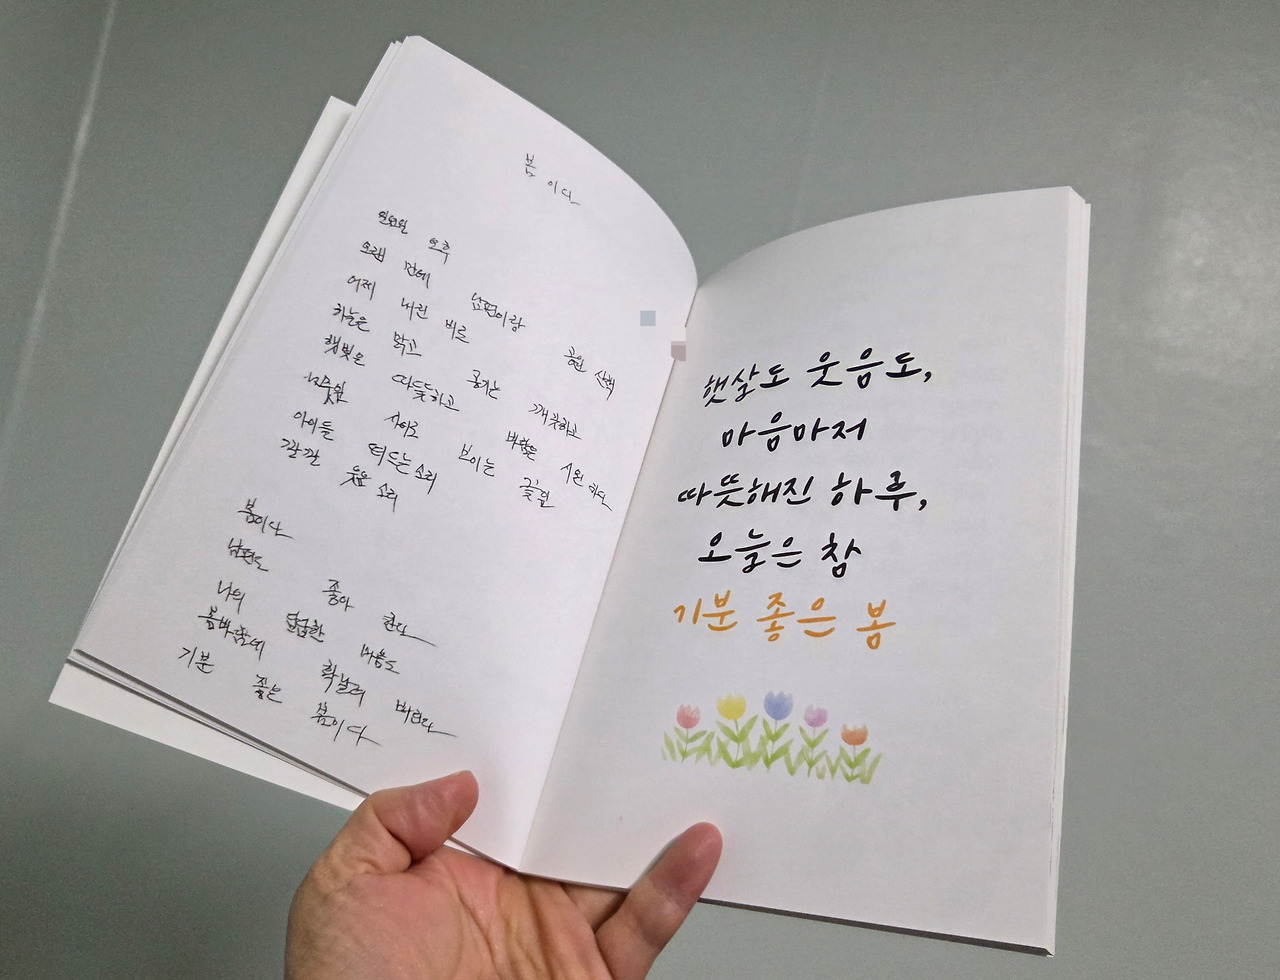 봄이다
일요일 오후
오랜 만에 남편이랑 공원 산책
어제 내린 비로
하늘은 맑고 공기는 깨끗하고
햇빛은 따뜻하고 바람은 시원하다
나뭇잎 사이로 보이는 꽃잎
아이들 떠드는 소리
깔깔 웃음 소리
봄이다
남편도 좋아 한다
나의 답답한 마음도
봄바람에 확 날려 버린다
기분 좋은 봄이다
햇살도 웃음도,
마음마저
따뜻해진 하루,
오늘은 참
기분 좋은 봄